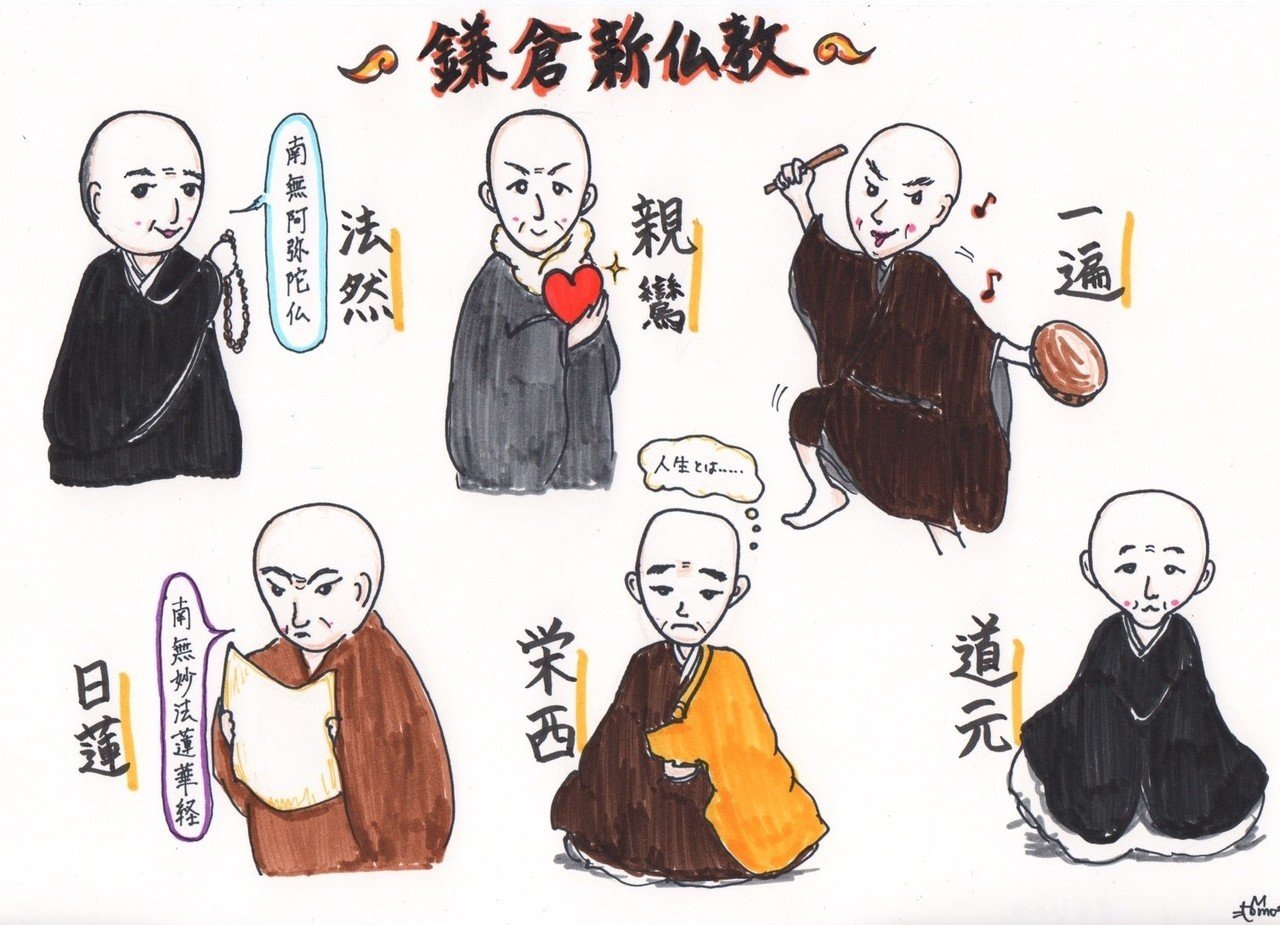 鎌倉新仏教
法然
南無阿弥陀仏
親鸞
一遍
日蓮
南無妙法蓮華経
栄西
人生とは……
道元